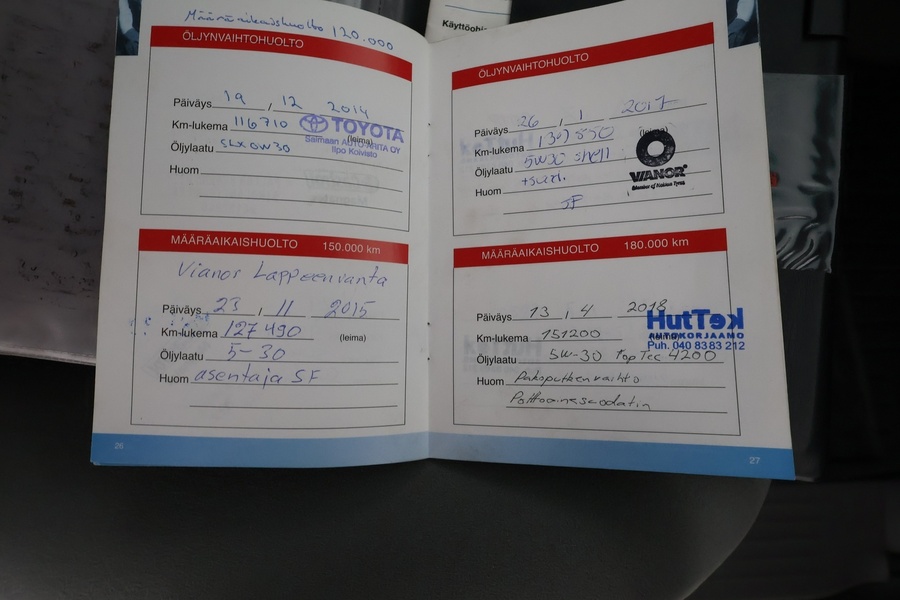 Määräaikaishuolto 120.000
ÖLJYNVAIHTOHUOLTO
Päiväys 19, 12 2014
Km-lukema 116710 (leima)
TOYOTA
Saimaan AUTO ARITA OY
Ilpo Koivisto
Öljylaatu SLX 0W30
Huom
MÄÄRÄAIKAISHUOLTO 150.000 km
Vianor Lappeenranta
Päiväys 23, 11 2015
Km-lukema 127490 (leima)
Öljylaatu 5-30
Huom asentaja SF
26
Käyttöohj
ÖLJYNVAIHTOHUOLTO
Päiväys 26, 1 2017
Km-lukema (leima)
Öljylaatu 5W30 shell
VIANOR
Member of Nokian Tyres
Huom +suod.
MÄÄRÄAIKAISHUOLTO 180.000 km
Päiväys 13, 4 2018
HutTek
AUTOKORJAAMO
Puh. 040 8383 212
Km-lukema 151200
Öljylaatu 5W-30 TopTec 4200
Huom Pakoputken vaihto
Polttoainesuodatin
27